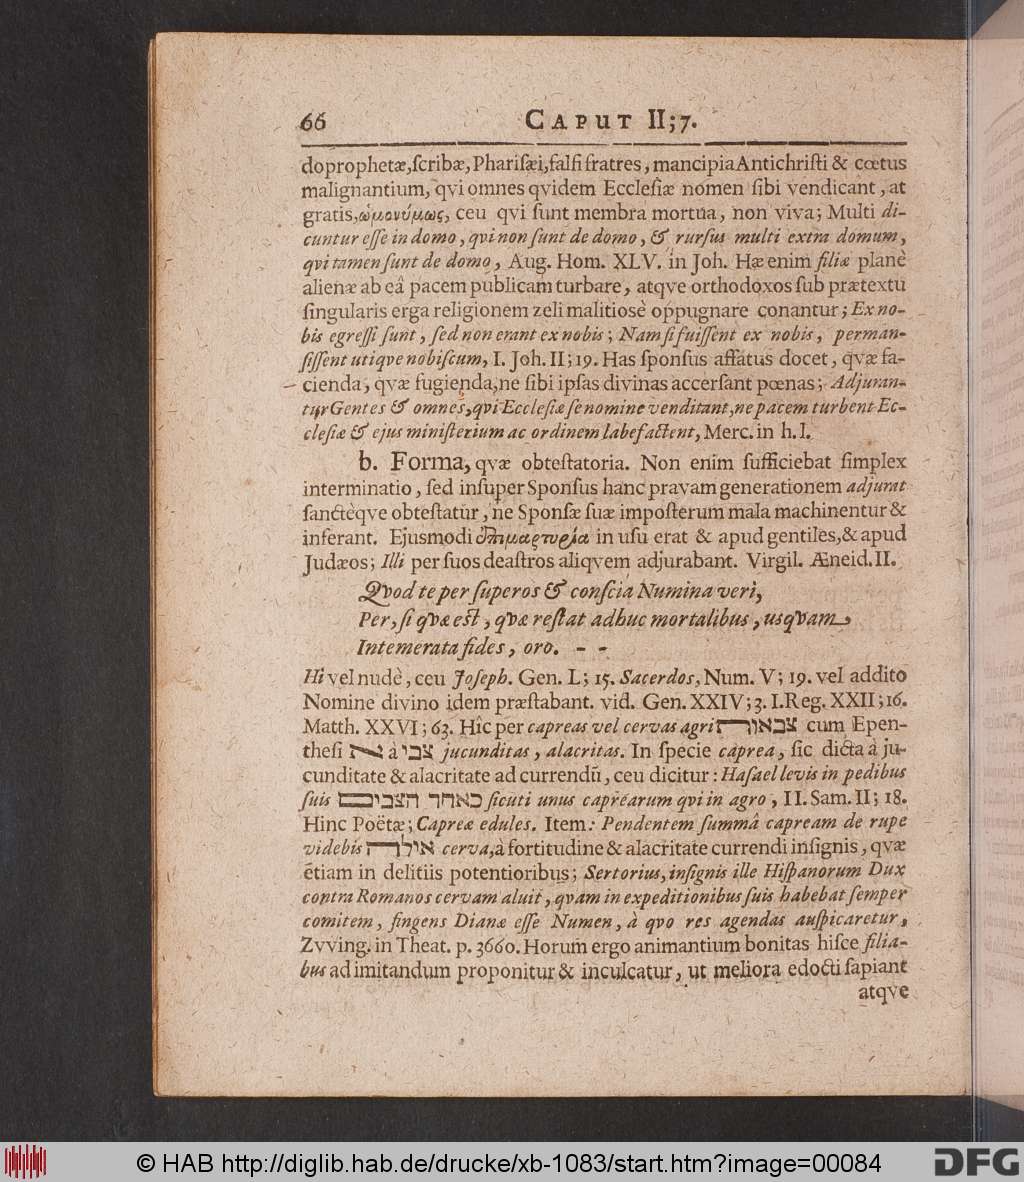 66 CAPUT II;7.
doprophetæ,ſcribæ,Phariſæi,falſi fratres, mancipia Antichriſti & cœtus
malignantium, qvi omnes qvidem Eccleſiæ nomen ſibi vendicant, at
gratis,ὡμονύμως, ceu qvi ſunt membra mortua, non viva; Multi di-
cuntur eſſe in domo, qvi non ſunt de domo, & rurſus multi extra domum,
qvi tamen ſunt de domo, Aug. Hom. XLV. in Joh. Hæ enim filiæ planè
alienæ ab eâ pacem publicam turbare, atqve orthodoxos ſub prætextu
ſingularis erga religionem zeli malitiosè oppugnare conantur; Ex no-
bis egreſſi ſunt, ſed non erant ex nobis; Nam ſi fuiſſent ex nobis, perman-
ſiſſent utiqve nobiſcum, I. Joh. II; 19. Has ſponſus affatus docet, qvæ fa-
cienda, qvæ fugienda,ne ſibi ipſas divinas accerſant pœnas; Adjuran-
tur Gentes & omnes,qvi Eccleſiæ ſe nomine venditant,ne pacem turbent Ec-
cleſiæ & ejus miniſterium ac ordinem labefactent, Merc. in h. l.
b. Forma, qvæ obteſtatoria. Non enim ſufficiebat ſimplex
interminatio, ſed inſuper Sponſus hanc pravam generationem adjurat
ſanctèqve obteſtatur, ne Sponſæ ſuæ impoſterum mala machinentur &
inferant. Ejusmodi ἐπιμαρτυρία in uſu erat & apud gentiles, & apud
Judæos; Illi per ſuos deaſtros aliqvem adjurabant. Virgil. Æneid. II.
Qvod te per ſuperos & conſcia Numina veri,
Per, ſi qvæ eſt, qvæ reſtat adhuc mortalibus, usqvam
Intemerata fides, oro. - -
Hi vel nudè, ceu Joſeph. Gen. L; 15. Sacerdos, Num. V; 19. vel addito
Nomine divino idem præſtabant. vid. Gen. XXIV; 3. I. Reg. XXII; 16.
Matth. XXVI; 63. Hîc per capreas vel cervas agri צבאורה cum Epen-
theſi א à צבי jucunditas, alacritas. In ſpecie caprea, ſic dicta à ju-
cunditate & alacritate ad currendū, ceu dicitur: Haſael levis in pedibus
ſuis כאחר הצבים ſicuti unus caprearum qvi in agro, II. Sam. II; 18.
Hinc Poëtæ; Capreæ edules. Item: Pendentem ſummâ capream de rupe
videbis אילרה cerva,à fortitudine & alacritate currendi inſignis, qvæ
etiam in delitiis potentioribus; Sertorius, inſignis ille Hiſpanorum Dux
contra Romanos cervam aluit, qvam in expeditionibus ſuis habebat ſemper
comitem, fingens Dianæ eſſe Numen, à qvo res agendas auſpicaretur,
Zvving. in Theat. p. 3660. Horum ergo animantium bonitas hiſce filia-
bus ad imitandum proponitur & inculcatur, ut meliora edocti ſapiant
atqve
© HAB http://diglib.hab.de/drucke/xb-1083/start.htm?image=00084
DFG